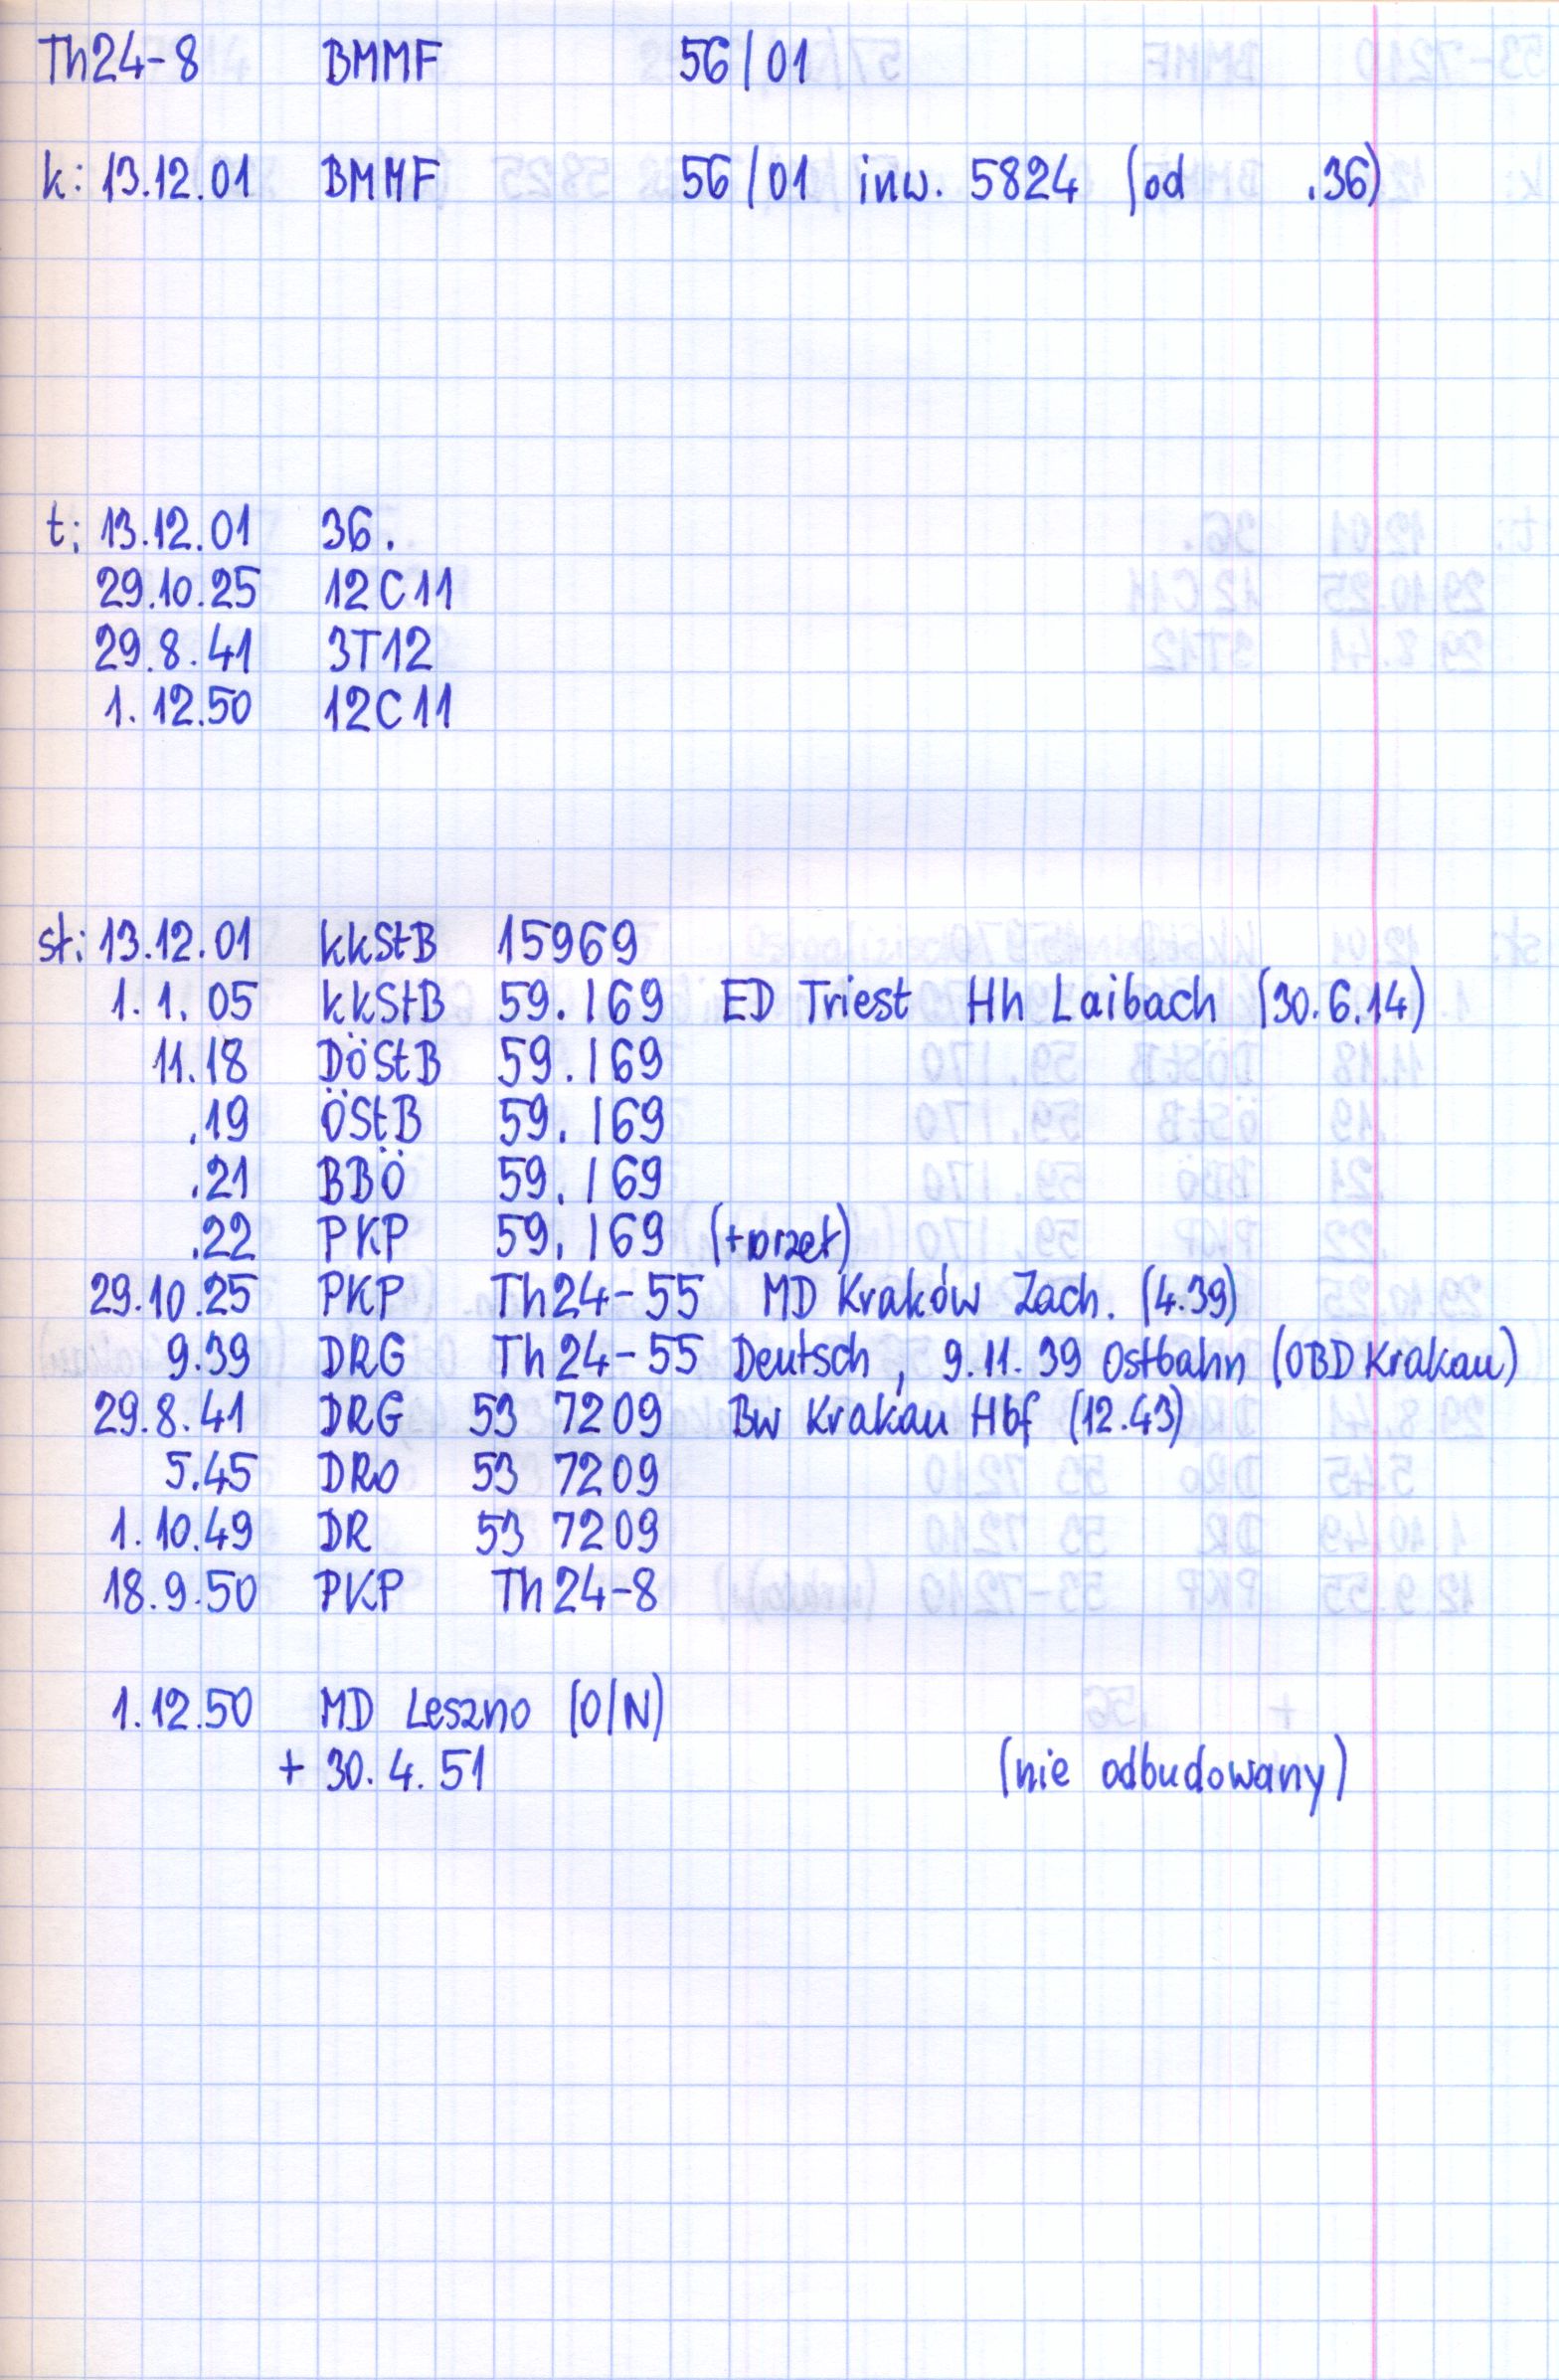 Th24-8 BMMF 56/01
k: 13.12.01 BMMF 56/01 inw. 5824 (od .36)
t: 13.12.01 36.
29.10.25 12C11
29.8.41 3T12
1.12.50 12C11
st: 13.12.01 kkStB 15969
1.1.05 kkStB 59.169 ED Triest Hh Laibach (30.6.14)
11.18 DöStB 59.169
.19 ÖStB 59.169
.21 BBÖ 59.169
.22 PKP 59.169 (+przet)
29.10.25 PKP Th24-55 MD Kraków Zach. (4.39)
9.39 DRG Th24-55 Deutsch, 9.11.39 Ostbahn (OBD Krakau)
29.8.41 DRG 53 7209 Bw Krakau Hbf (12.43)
5.45 DRo 53 7209
1.10.49 DR 53 7209
18.9.50 PKP Th24-8
1.12.50 MD Leszno (O/N)
+ 30.4.51 (nie odbudowany)